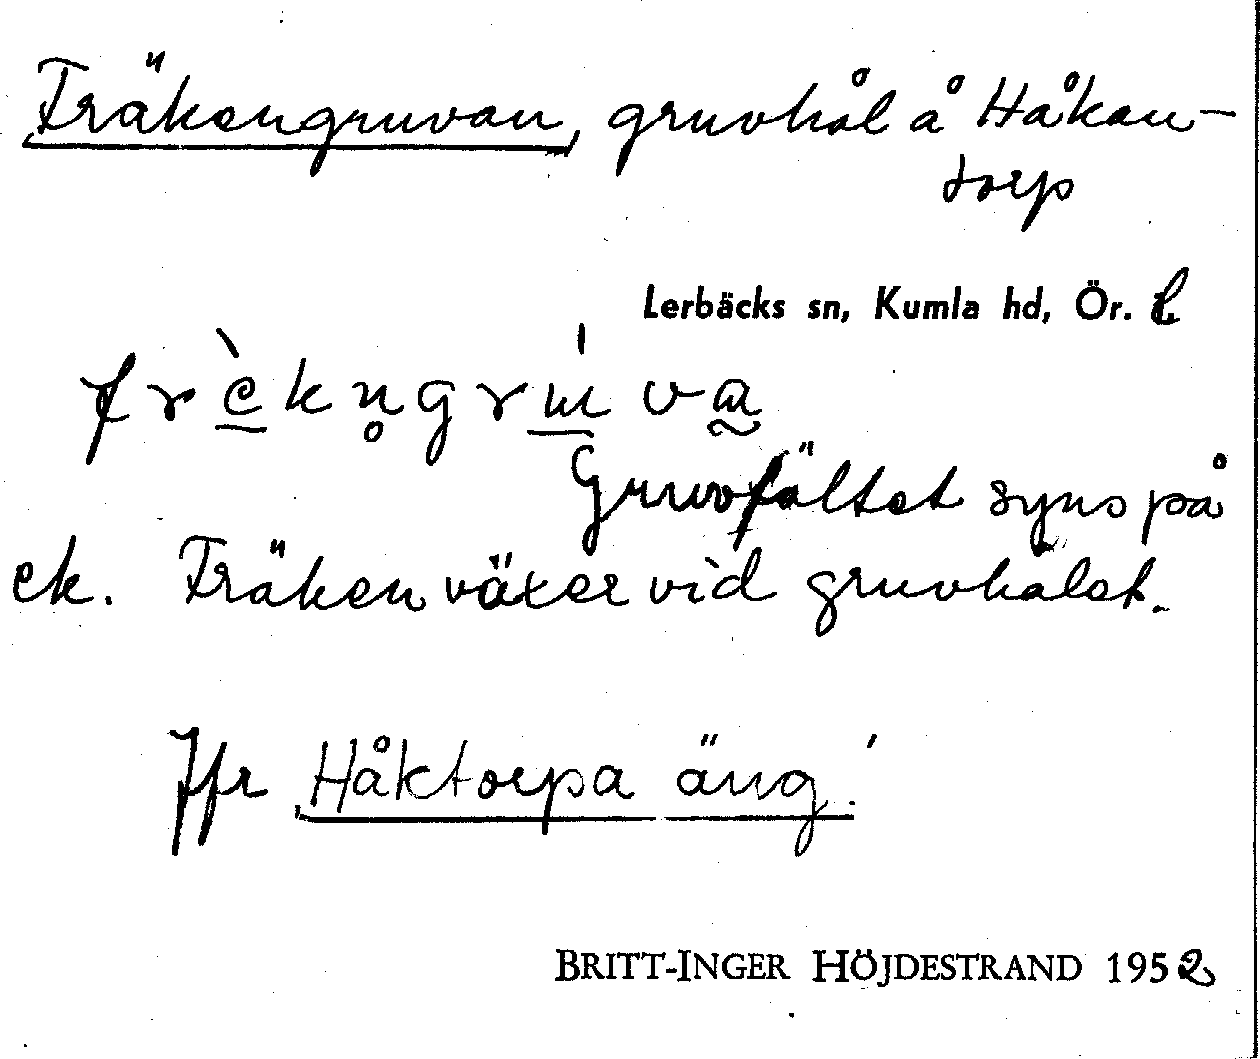 Fräkengruvan, gruvhål å Håkan-
torp
Lerbäcks sn, Kumla hd, Ör. l
Gruvfältet syns på
ek. Fräken växer vid gruvhålet.
Jfr Håktorpa äng.
BRITT-INGER HÖJDESTRAND 1952